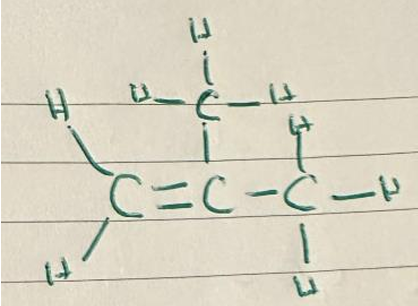 H
H H-C-H
H
C=C-C-H
H H